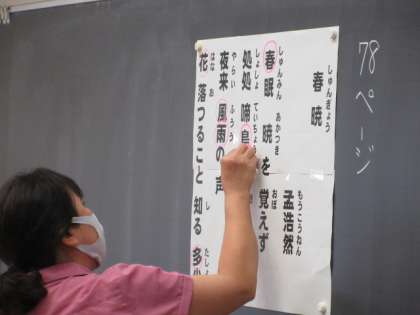 78ページ
しゅんぎょう
春暁
もうこうねん
孟浩然
しゅんみん あかつき おぼ
春眠 暁を覚えず
しょしょ ていちょ
処処 啼鳥
やらい ふうう
夜来 風雨の 声
はな お し たしょ
花 落つること 知る 多少